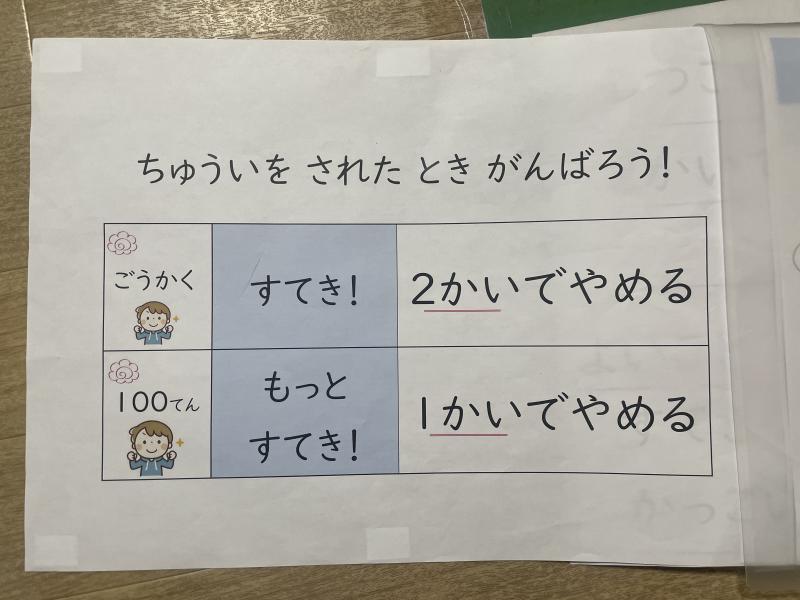 ちゅういを された とき がんばろう!
ごうかく
すてき!
2かいでやめる
100てん
もっと
すてき!
1かいでやめる